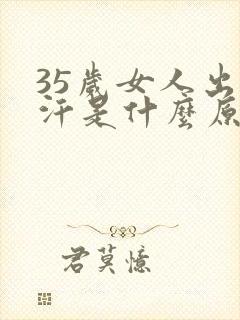 35歲女人出
汗是什麼原
君莫憶